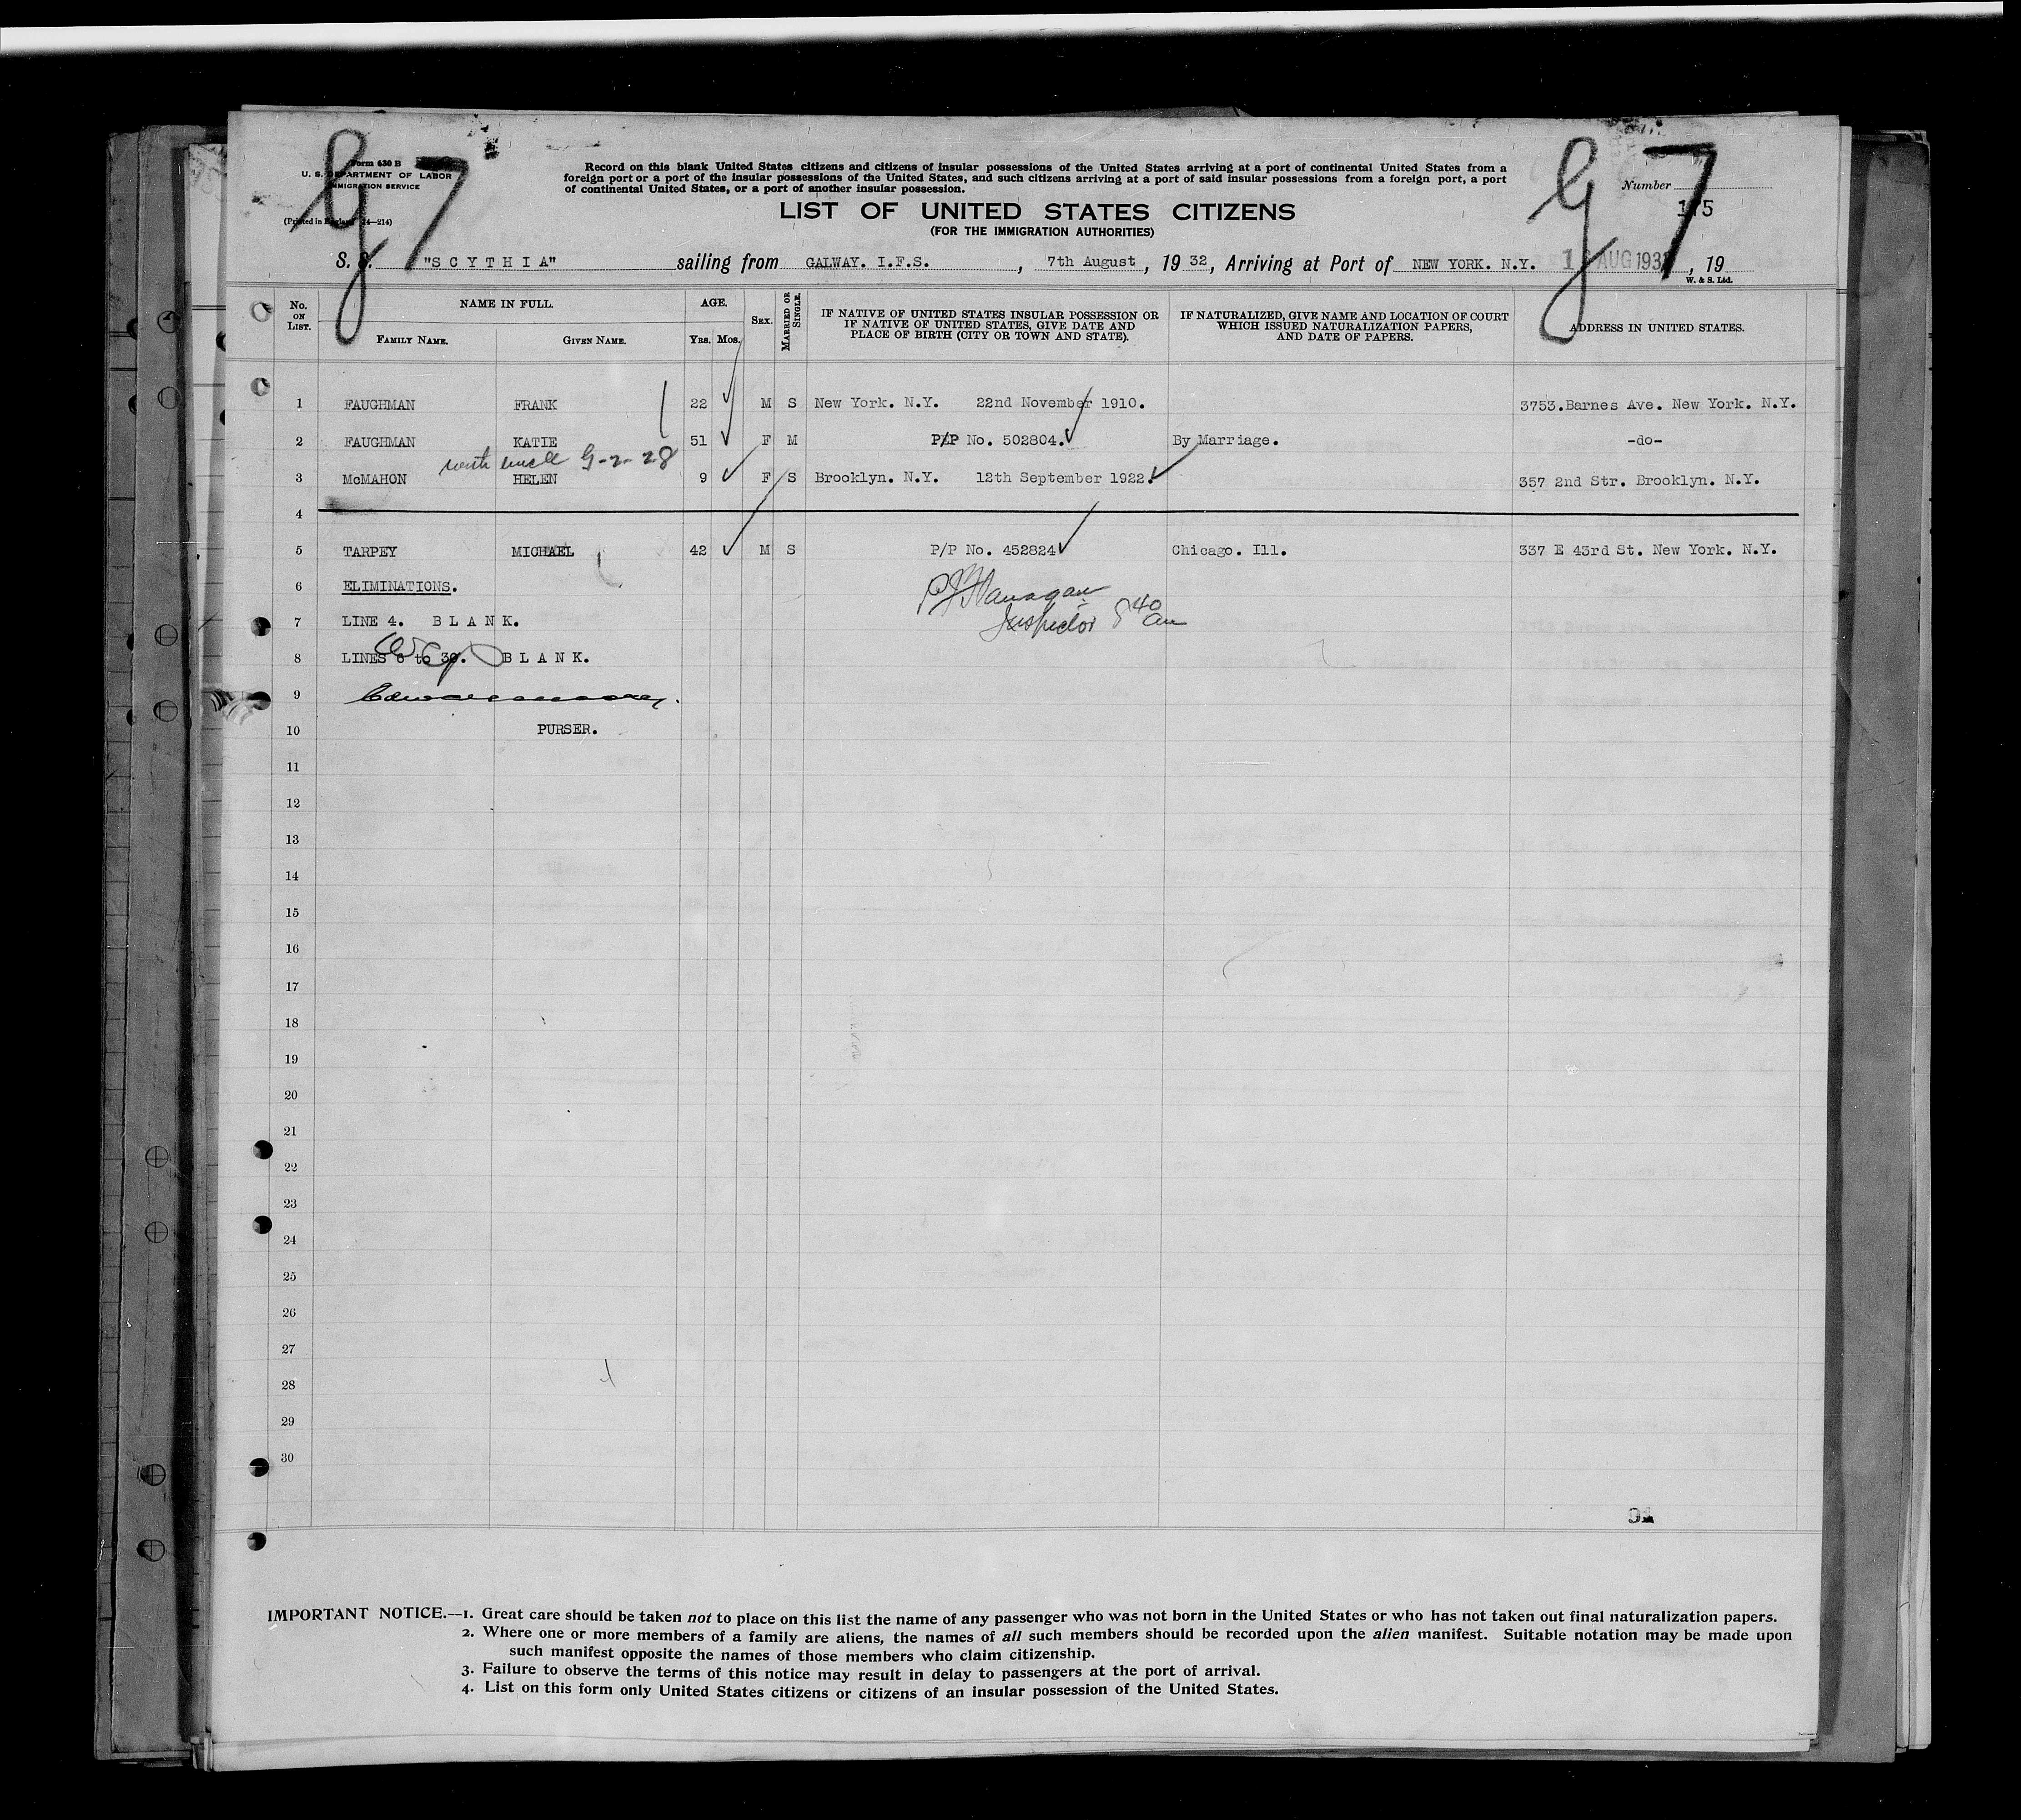 g7
g7
Form 630 B
U. S. DEPARTMENT OF LABOR
IMMIGRATION SERVICE
(Printed in England 24—214)
Record on this blank United States citizens and citizens of insular possessions of the United States arriving at a port of continental United States from a
foreign port or a port of the insular possessions of the United States, and such citizens arriving at a port of said insular possessions from a foreign port, a port
of continental United States, or a port of another insular possession.
Number
LIST OF UNITED STATES CITIZENS
(FOR THE IMMIGRATION AUTHORITIES)
S. S. "SCYTHIA" sailing from GALWAY. I.F.S. , 7th August , 19 32, Arriving at Port of NEW YORK. N.Y. AUG 193 , 19
W. & S. Ltd.
No. ON LIST. NAME IN FULL. AGE. SEX. MARRIED OR SINGLE. IF NATIVE OF UNITED STATES INSULAR POSSESSION OR IF NATIVE OF UNITED STATES, GIVE DATE AND PLACE OF BIRTH (CITY OR TOWN AND STATE). IF NATURALIZED, GIVE NAME AND LOCATION OF COURT WHICH ISSUED NATURALIZATION PAPERS, AND DATE OF PAPERS. ADDRESS IN UNITED STATES.
FAMILY NAME. GIVEN NAME. Yrs. Mos.
1 FAUGHMAN FRANK 22 M S New York. N.Y. 22nd November 1910. 3753.Barnes Ave. New York. N.Y.
2 FAUGHMAN KATIE 51 F M P/P No. 502804. By Marriage. -do-
with uncle G-2-28
3 McMAHON HELEN 9 F S Brooklyn. N.Y. 12th September 1922. 357 2nd Str. Brooklyn. N.Y.
4
5 TARPEY MICHAEL 42 M S P/P No. 452824 Chicago. Ill. 337 E 43rd St. New York. N.Y.
6 ELIMINATIONS.
Flanagan
7 LINE 4. BLANK.
Inspector 8 40 am
8 LINES 6 to 30. BLANK.
9
10 PURSER.
11
12
13
14
15
16
17
18
19
20
21
22
23
24
25
26
27
28
29
30
91
IMPORTANT NOTICE.—1. Great care should be taken not to place on this list the name of any passenger who was not born in the United States or who has not taken out final naturalization papers.
2. Where one or more members of a family are aliens, the names of all such members should be recorded upon the alien manifest. Suitable notation may be made upon
such manifest opposite the names of those members who claim citizenship.
3. Failure to observe the terms of this notice may result in delay to passengers at the port of arrival.
4. List on this form only United States citizens or citizens of an insular possession of the United States.